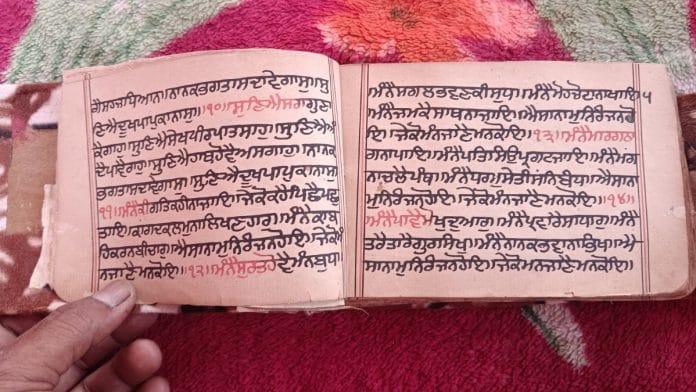 ਗੈਸਹਜਧਿਆਨਾ।ਨਾਨਕਭਗਤਾਸਦਾਵੇਗਾਸੁ।ਸੁ
ਣਿਐਦੂਖਪਾਪਕਾਨਾਸੁ।।੧੦।।ਸੁਣਿਐਸਰਾਗੁਣਾ
ਕੈਗਾਹ।ਸੁਣਿਐਸੇਖਪੀਰਪਾਤਸਾਹ।ਸੁਣਿਐਅੰ
ਧੇਪਾਵੈਰਾਹੁ।ਸੁਣਿਐਹਾਥਹੋਵੈਅਸਗਾਹੁ।ਨਾਨਕ
ਭਗਤਾਸਦਾਵੇਗਾਸੁ।ਸੁਣਿਐਦੂਖਪਾਪਕਾਨਾਸੁ।
੧੧।ਮੰਨੈਕੀਗਤਿਕਹੀਨਜਾਇ।ਜੇਕੋਕਹੈਪਿਛੈਪਛੁ
ਤਾਇ।ਕਾਗਦਕਲਮੁਨਾਲਿਖਣਹਾਰੁ।ਮੰਨੇਕਾਬ
ਹਿਕਰਨਬੀਚਾਰੁ।ਐਸਾਨਾਮੁਨਿਰੰਜਨਹੋਇ।ਜੇਕੋਮੰ
ਨਜਾਣੈਮਨਕੋਇ।।੧੨।।ਮੰਨੈਸੁਰਤਹੋਵੈਮੰਨਬੁਧਾ
ਮੰਨੈਸਗਲਭਵਣਕੀਸੁਧਾ।ਮੰਨੈਮੋਹਚੋਟਨਾਖਾਇ। ੫
ਮੰਨੈਜਮਕੈਸਾਥਨਾਜਾਇ।ਐਸਾਨਾਮੁਨਿਰੰਜਨਹੋ
ਇ।ਜੇਕੋਮੰਨਜਾਣੈਮਨਕੋਇ।।੧੩।।ਮੰਨੈਮਾਰਗਠਾ
ਗਨਾਪਾਇ।ਮੰਨੈਪਤਿਸਿਉਪ੍ਰਗਟਜਾਇ।ਮੰਨੈਮਗੁ
ਨਾਚਲੈਪੰਥ।ਮੰਨੈਧਰਮੁਸੇਤੀਸੰਨਿਬੰਧ।ਐਸਾਨਾ
ਮੁਨਿਰੰਜਨਹੋਇ।ਜੇਕੋਮੰਨਜਾਣੈਮਨਕੋਇ।।੧੪।।
ਮੰਨੈਪਾਵੈਮੋਖੁਦੁਆਰੁ।ਮੰਨੈਪਰਵਾਰੈਸਾਧਾਰੁ।ਮੰਨੈ
ਤਰੈਤਾਰੇਗੁਰਸਿਖ।ਮੰਨੈਨਾਨਕਭਵਨਾਭਿਖ।ਐ
ਸਾਨਾਮੁਨਿਰੰਜਨਹੋਇ।ਜੇਕੋਮੰਨਜਾਣੈਮਨਕੋਇ।।